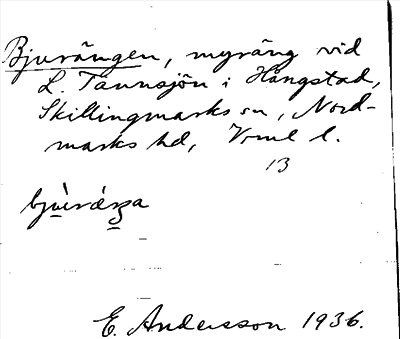 Bjurängen, myräng vid
L. Tannsjön i Hångstad,
Skillingmarks sn, Nord-
marks hd, Vrml l.
13
E. Andersson 1936.